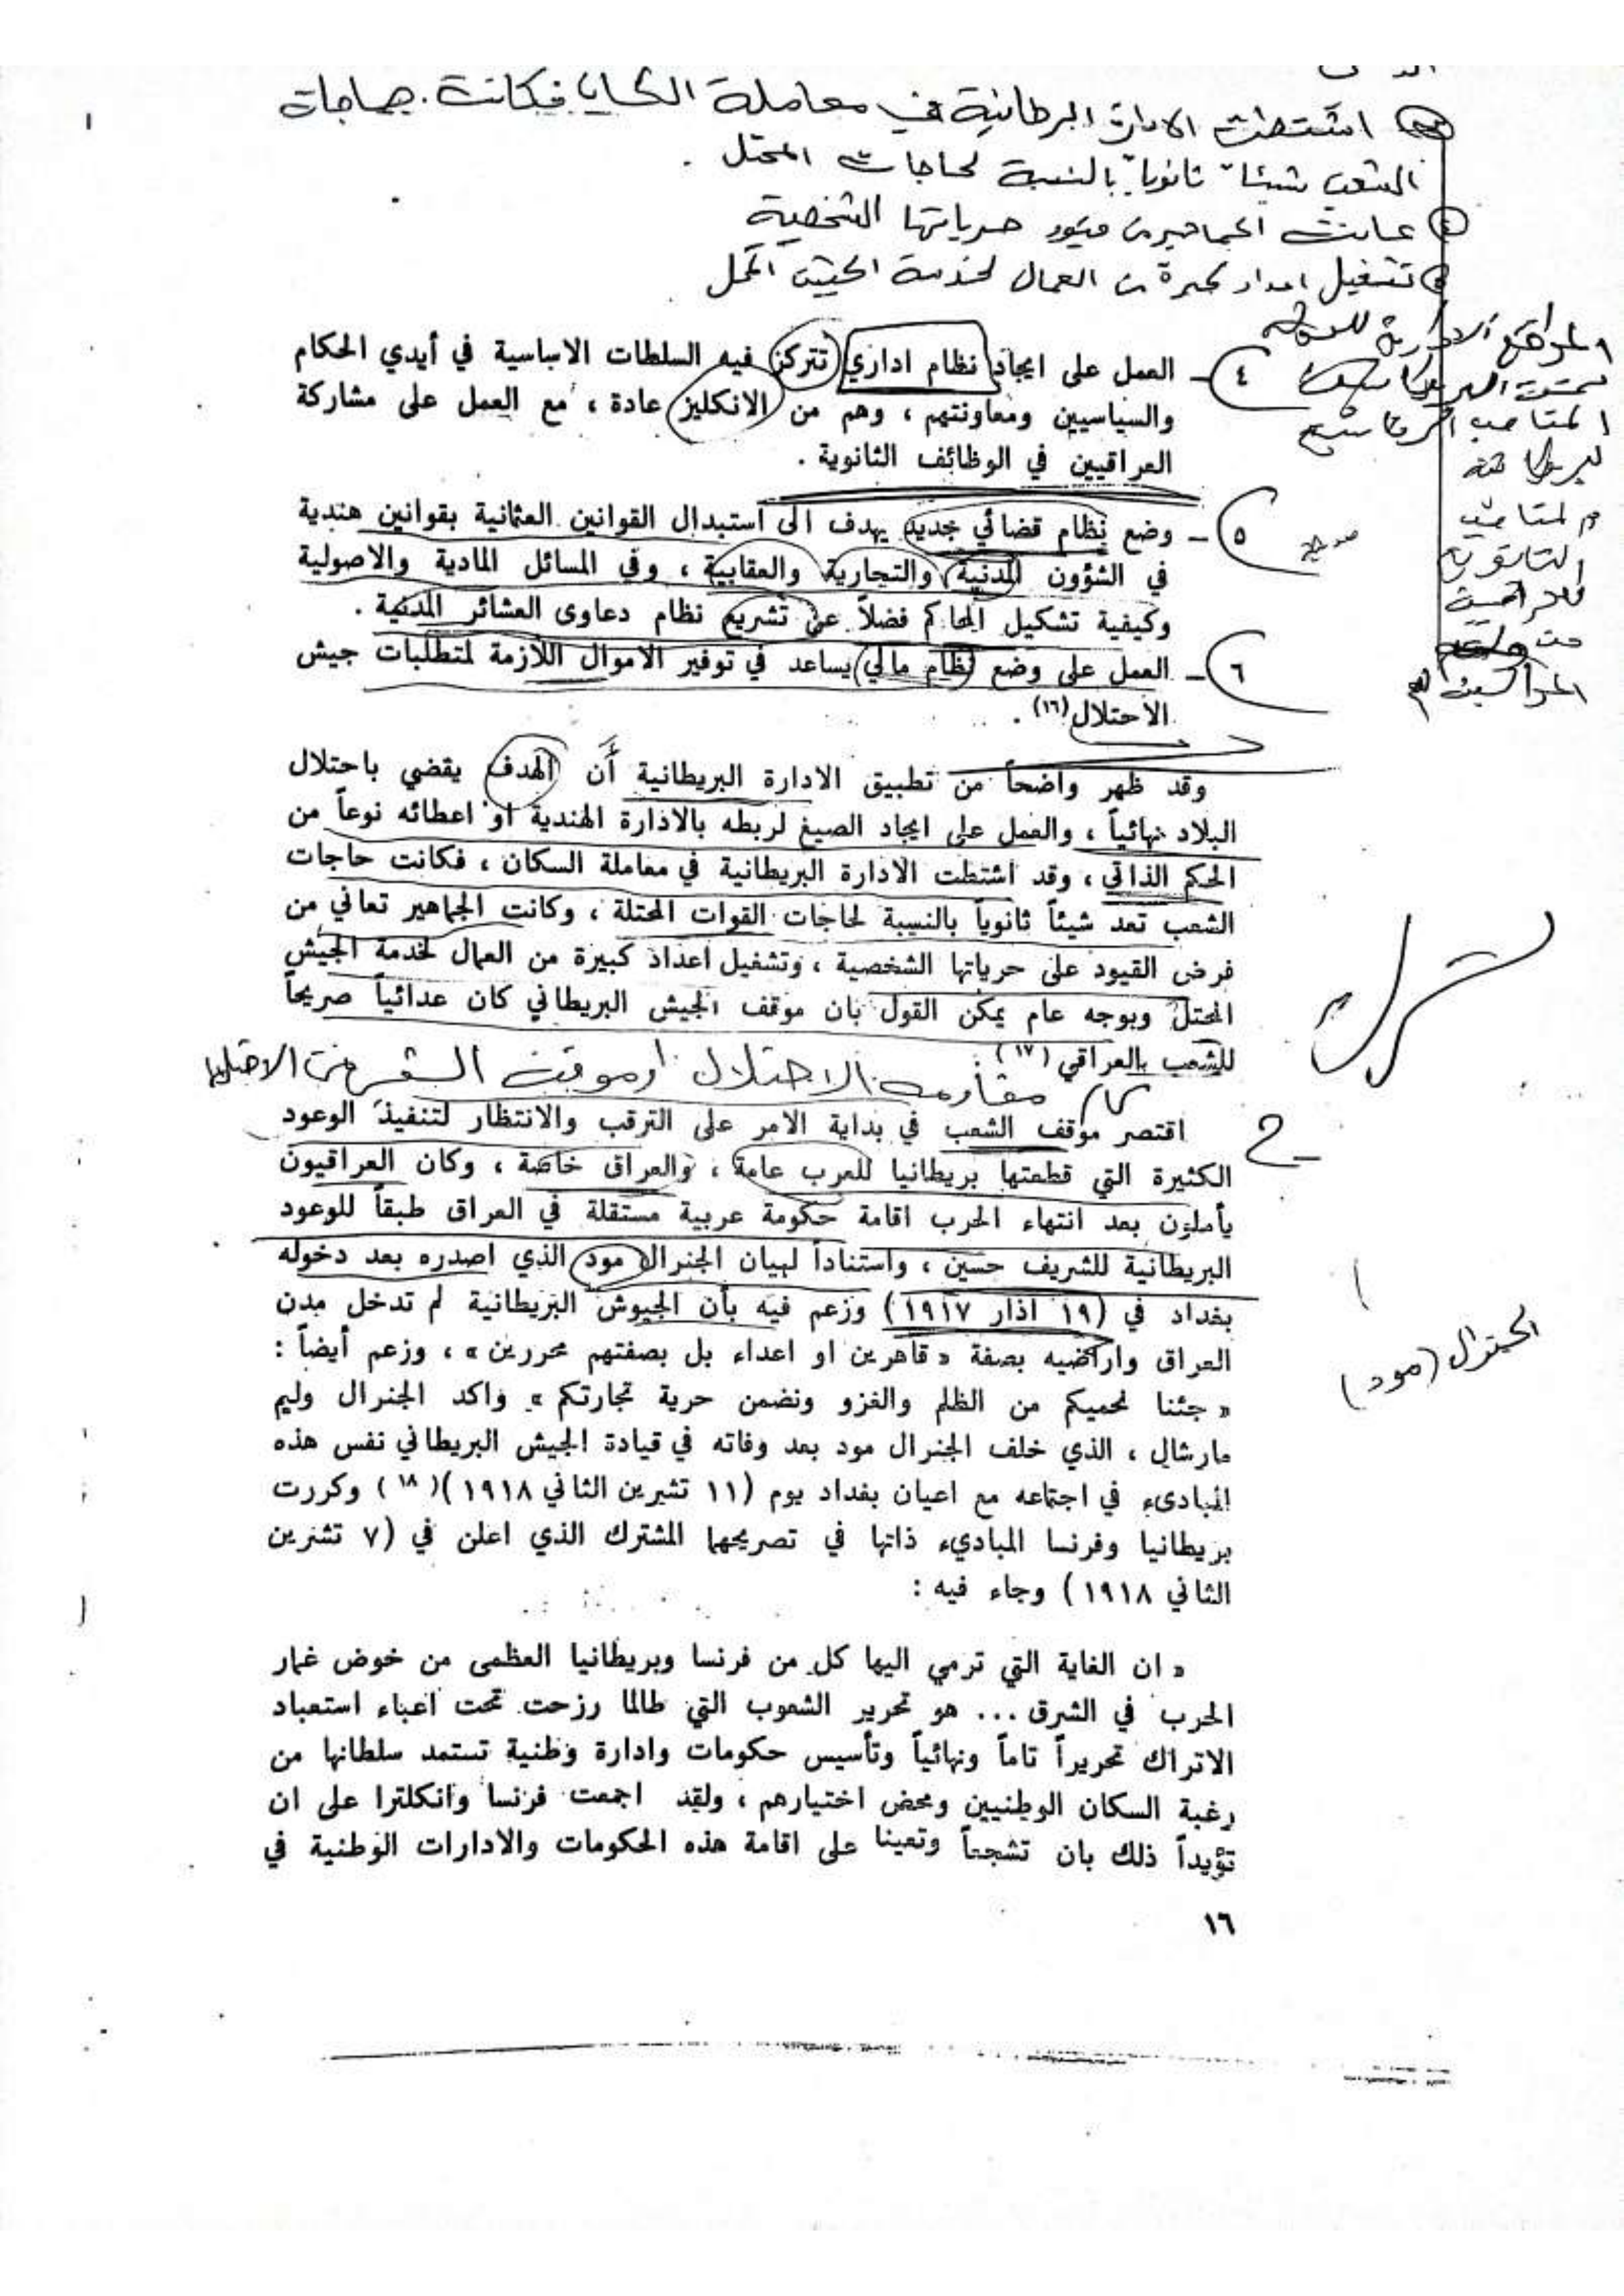 اشتطت الادارة البريطانية في معاملة السكان فكانت حاجات
الشعب شيئاً ثانوياً بالنسبة لحاجات المحتل .
عانت الجماهير من قيود حرياتها الشخصية
تشغيل اعداد كبيرة من العمال لخدمة الجيش المحتل
٤ - العمل على ايجاد نظام اداري تتركز فيه السلطات الاساسية في أيدي الحكام
والسياسيين ومعاونتهم ، وهم من الانكليز عادة ، مع العمل على مشاركة
العراقيين في الوظائف الثانوية .
٥ - وضع نظام قضائي جديد يهدف الى استبدال القوانين العثمانية بقوانين هندية
في الشؤون المدنية والتجارية والعقابية ، وفي المسائل المادية والاصولية
وكيفية تشكيل المحاكم فضلاً عن تشريع نظام دعاوى العشائر المدنية .
٦ - العمل على وضع نظام مالي يساعد في توفير الاموال اللازمة لمتطلبات جيش
الاحتلال (١٦) .
وقد ظهر واضحاً من تطبيق الادارة البريطانية أن الهدف يقضي باحتلال
البلاد نهائياً ، والعمل على ايجاد الصيغ لربطه بالادارة الهندية او اعطائه نوعاً من
الحكم الذاتي ، وقد اشتطت الادارة البريطانية في معاملة السكان ، فكانت حاجات
الشعب تعد شيئاً ثانوياً بالنسبة لحاجات القوات المحتلة ، وكانت الجماهير تعاني من
فرض القيود على حرياتها الشخصية ، وتشغيل اعداد كبيرة من العمال لخدمة الجيش
المحتل وبوجه عام يمكن القول بان موقف الجيش البريطاني كان عدائياً صريحاً
للشعب بالعراقي (١٧)
مقاومة الاحتلال او موقف الشعب من الاحتلال
اقتصر موقف الشعب في بداية الامر على الترقب والانتظار لتنفيذ الوعود
الكثيرة التي قطعتها بريطانيا للعرب عامة ، والعراق خاصة ، وكان العراقيون
يأملون بعد انتهاء الحرب اقامة حكومة عربية مستقلة في العراق طبقاً للوعود
البريطانية للشريف حسين ، واستناداً لبيان الجنرال مود الذي اصدره بعد دخوله
بغداد في (١٩ اذار ١٩١٧) وزعم فيه بأن الجيوش البريطانية لم تدخل مدن
العراق واراضيه بصفة « قاهرين او اعداء بل بصفتهم محررين » ، وزعم أيضاً :
« جئنا نحميكم من الظلم والغزو ونضمن حرية تجارتكم » واكد الجنرال وليم
مارشال ، الذي خلف الجنرال مود بعد وفاته في قيادة الجيش البريطاني نفس هذه
المبادىء في اجتماعه مع اعيان بغداد يوم (١١ تشرين الثاني ١٩١٨) (١٨) وكررت
بريطانيا وفرنسا المباديء ذاتها في تصريحهما المشترك الذي اعلن في (٧ تشرين
الثاني ١٩١٨) وجاء فيه :
الجنرال (مود)
« ان الغاية التي ترمي اليها كل من فرنسا وبريطانيا العظمى من خوض غمار
الحرب في الشرق ... هو تحرير الشعوب التي طالما رزحت تحت اعباء استعباد
الاتراك تحريراً تاماً ونهائياً وتأسيس حكومات وادارة وطنية تستمد سلطانها من
رغبة السكان الوطنيين ومحض اختيارهم ، ولقد اجمعت فرنسا وانكلترا على ان
تؤيداً ذلك بان تشجعاً وتعينا على اقامة هذه الحكومات والادارات الوطنية في
١٦